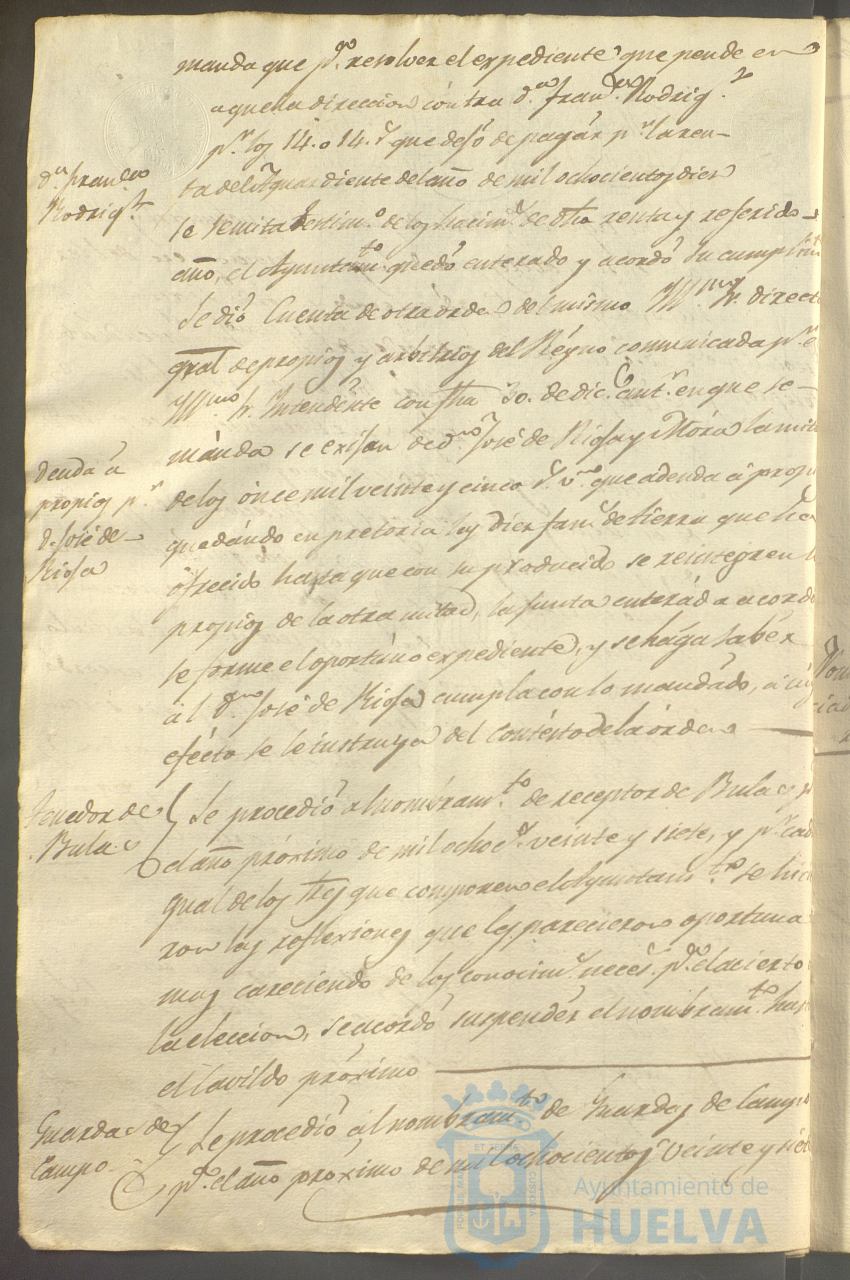 manda que pª. resolver el expediente que pende en
aquella direccion contra dⁿ. Franco. Rodrigz.
pr. los 14. o 14. rs que dejó de pagar pr. la ren-
ta del Aguardiente del año de mil ochocientos diez
dⁿ. Franco
Rodrigz.
se remita testimo. de los hacimtos. de dha renta y referido
año, el Ayuntamto. quedó enterado y acordó su cumplim
Se dió Cuenta de otra orden del mismo Yllmo. Sr. direct
gral de propios y arbitrios del Reyno comunicada pr. e
Yllmo Sr. Intendente con fha 30. de dice. antr. en que se
manda se exijan de dn José de Rioja y Mora la mit
deuda á
propios pr.
d. José de
Rioja
de los once mil veinte y cinco rs. vn. que adeuda á propi
quedando en pretoria las diez fans. de tierra que ha
ofrecido hasta que con su producido se reintegren l
propios de la otra mitad, la junta enterada acordó
se forme el oportuno expediente, y se haga saber
al dn José de Rioja cumpla con lo mandado, á cuy
efecto se le instruya del contesto de la orden
Tenedor de
Bulas
Se procedió al nombramto. de receptor de Bulas p
el año próximo de mil ochocs. veinte y siete, y pr. cad
qual de los Sres que componen el Ayuntamto. se hic
ron las reflexiones que les parecieron oportuna
mas careciendo de los conocims. neces. pa. el acierto
la eleccion, se acordó suspender el nombramto. has
el Cavildo próximo
Guardas de
Campo
Se procedió al nombramto. de Guardas de Campo
pa. el año próximo de mil ochocientos veinte y siet
Ayuntamiento de
HUELVA